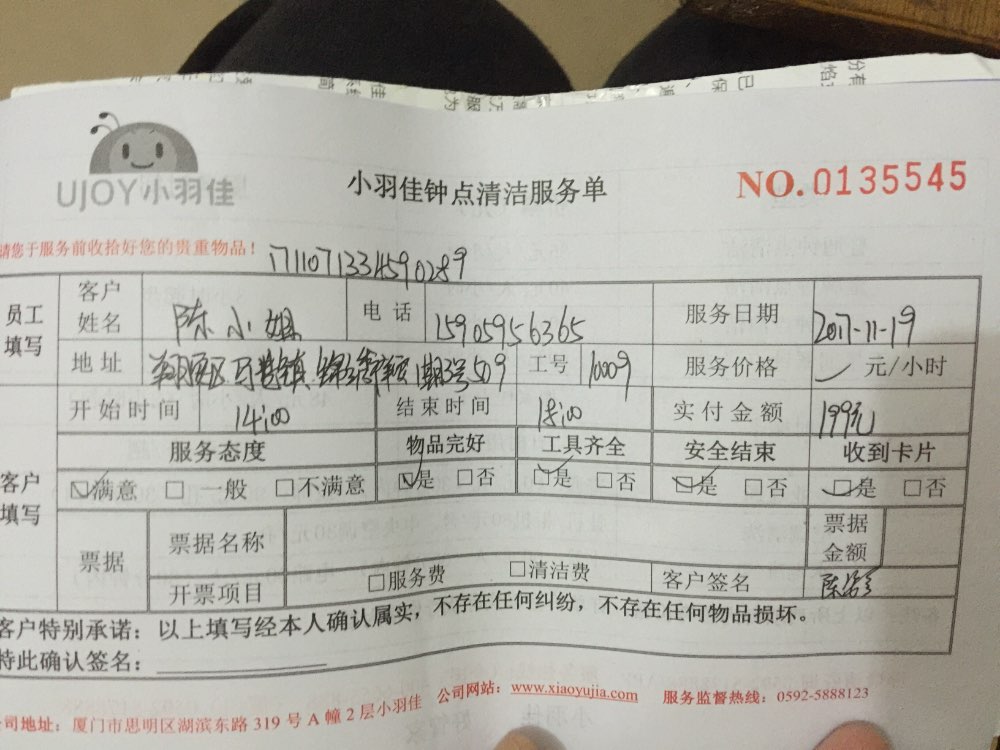 UJOY小羽佳
小羽佳钟点清洁服务单
NO.0135545
请您于服务前收拾好您的贵重物品！
员工填写
客户姓名 陈小姐 电话 15905956365 服务日期 2017-11-19
地址 翔安区马巷镇 509 工号 10009 服务价格 元/小时
开始时间 14:00 结束时间 18:00 实付金额 199元
客户填写
服务态度 物品完好 工具齐全 安全结束 收到卡片
☑满意 □一般 □不满意 ☑是 □否 ☑是 □否 ☑是 □否 ☑是 □否
票据 票据名称 票据金额
开票项目 □服务费 □清洁费 客户签名
客户特别承诺：以上填写经本人确认属实，不存在任何纠纷，不存在任何物品损坏。
特此确认签名：
公司地址：厦门市思明区湖滨东路319号A幢2层小羽佳 公司网站：www.xiaoyujia.com 服务监督热线：0592-5888123